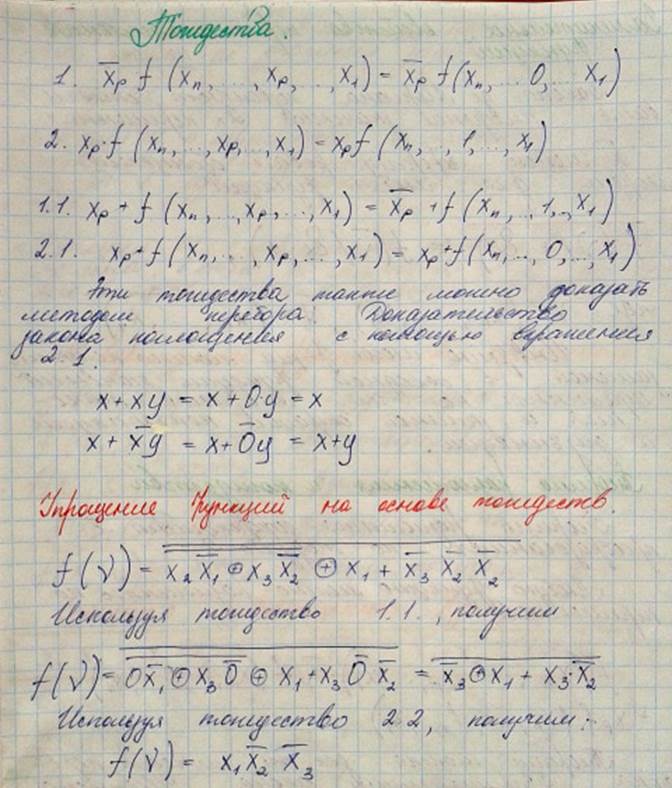 Тождества.
1. x̅ₚ f (xₙ, ..., xₚ, ..., x₁) = x̅ₚ f(xₙ, ... 0, ... x₁)
2. xₚ·f (xₙ, ..., xₚ, ..., x₁) = xₚf (xₙ, .., 1, ..., x₁)
1.1. xₚ + f (xₙ, ..., xₚ, ..., x₁) = x̅ₚ + f (xₙ, .., 1, .., x₁)
2.1. xₚ+f(xₙ, ..., xₚ, ..., x₁) = xₚ+f(xₙ, .., 0, ..., x₁)
Эти тождества также можно доказать
методом перебора. Доказательство
закона поглощения с помощью выражения
2.1.
x + xy = x + 0·y = x
x + x̅y = x + 0̅y = x+y
Упрощение функций на основе тождеств.
f(ν) = x₂ x̅₁ ⊕ x₃ x̅₂ ⊕ x₁ + x̅₃ x̅₂ x̅₂
Используя тождество 1.1., получим
f(ν) = 0x̅₁ ⊕ x₃ 0̅ ⊕ x₁ + x₃ 0̅ x̅₂ = x̅₃ ⊕ x₁ + x₃·x̅₂
Используя тождество 2.2, получим:
f(ν) = x₁ x̅₂ x̅₃